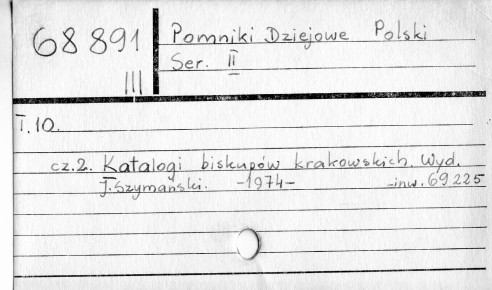 68 891
III
Pomniki Dziejowe Polski
Ser. II
T.10.
cz.2. Katalogi biskupów krakowskich. Wyd.
J. Szymański. -1974- -inw. 69 225